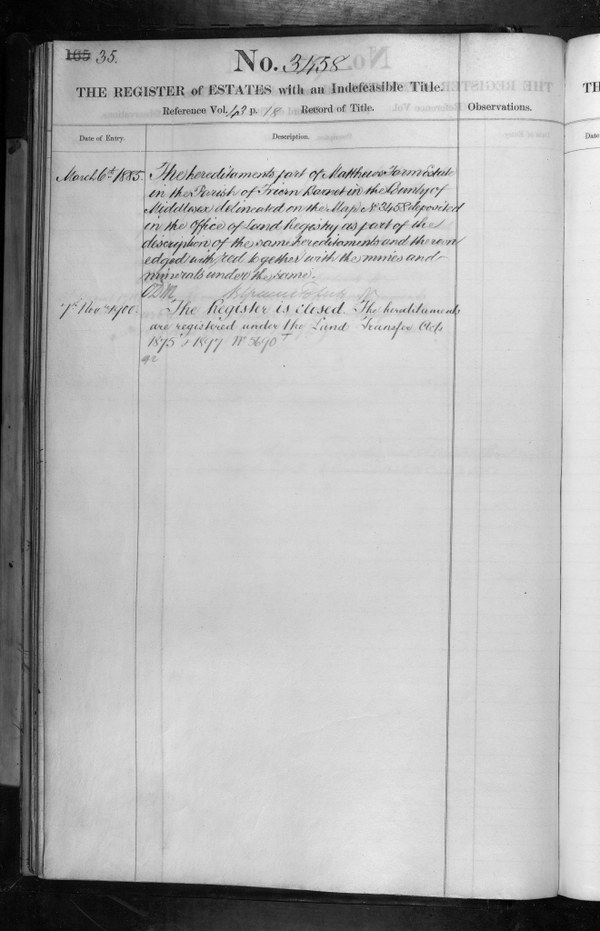 165 35.
No. 3458
THE REGISTER of ESTATES with an Indefeasible Title.
Reference Vol. 43 p. 18 Record of Title.
Observations.
Date of Entry.
Description.
March 6th 1885. The hereditaments part of Matthews Farm Estate
in the Parish of Friern Barnet in the County of
Middlesex delineated on the Map No 3458 deposited
in the Office of Land Registry as part of the
description of the same hereditaments and thereon
edged with red together with the mines and
minerals under the same.
7th Nov 1900. The Register is closed. The hereditaments
are registered under the Land Transfer Acts
1875 & 1897 No
TH
Date